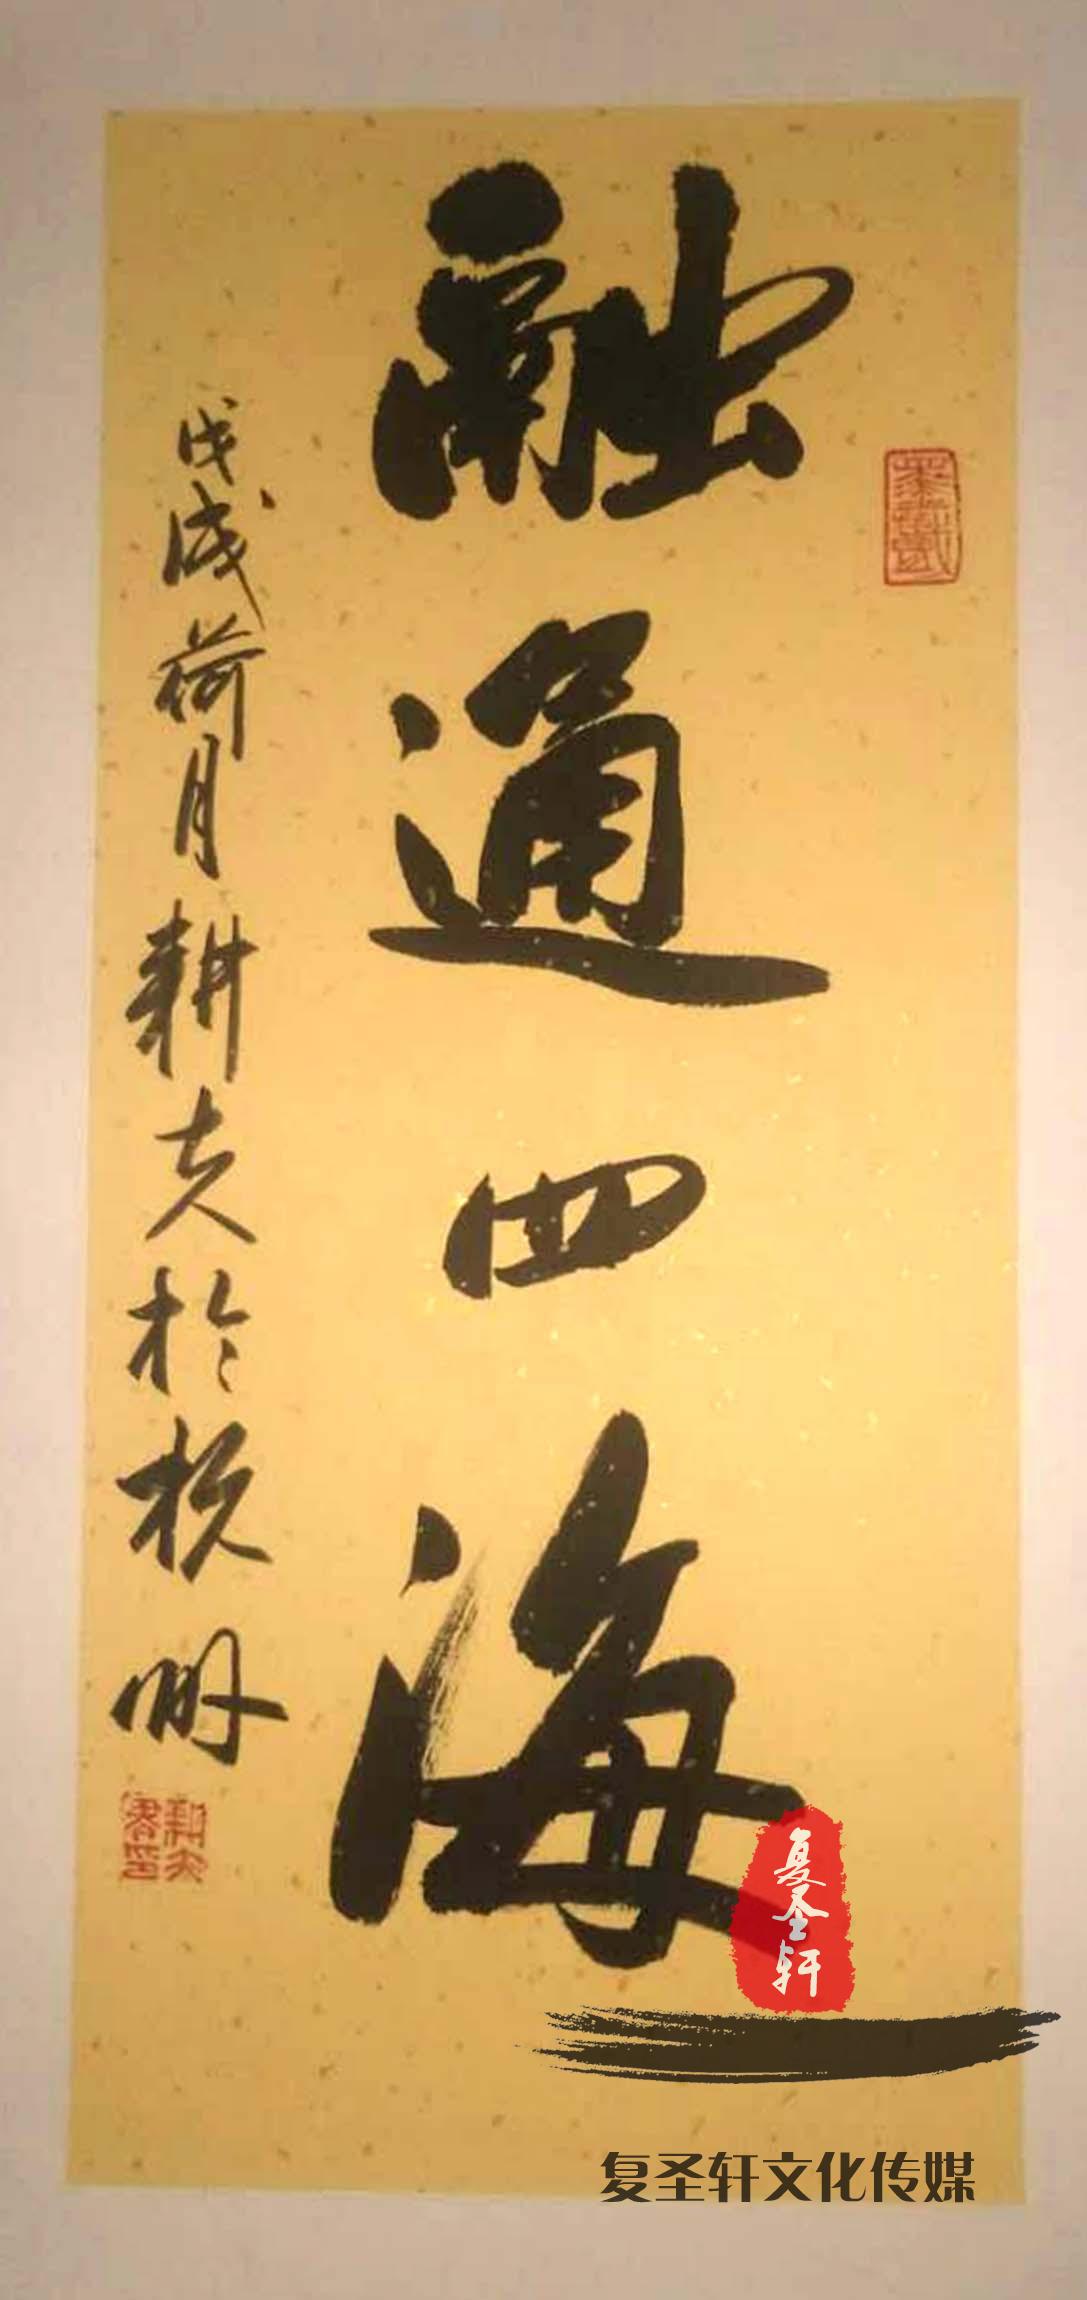 融通四海
戊戌荷月耕夫於杭州
复圣轩
复圣轩文化传媒